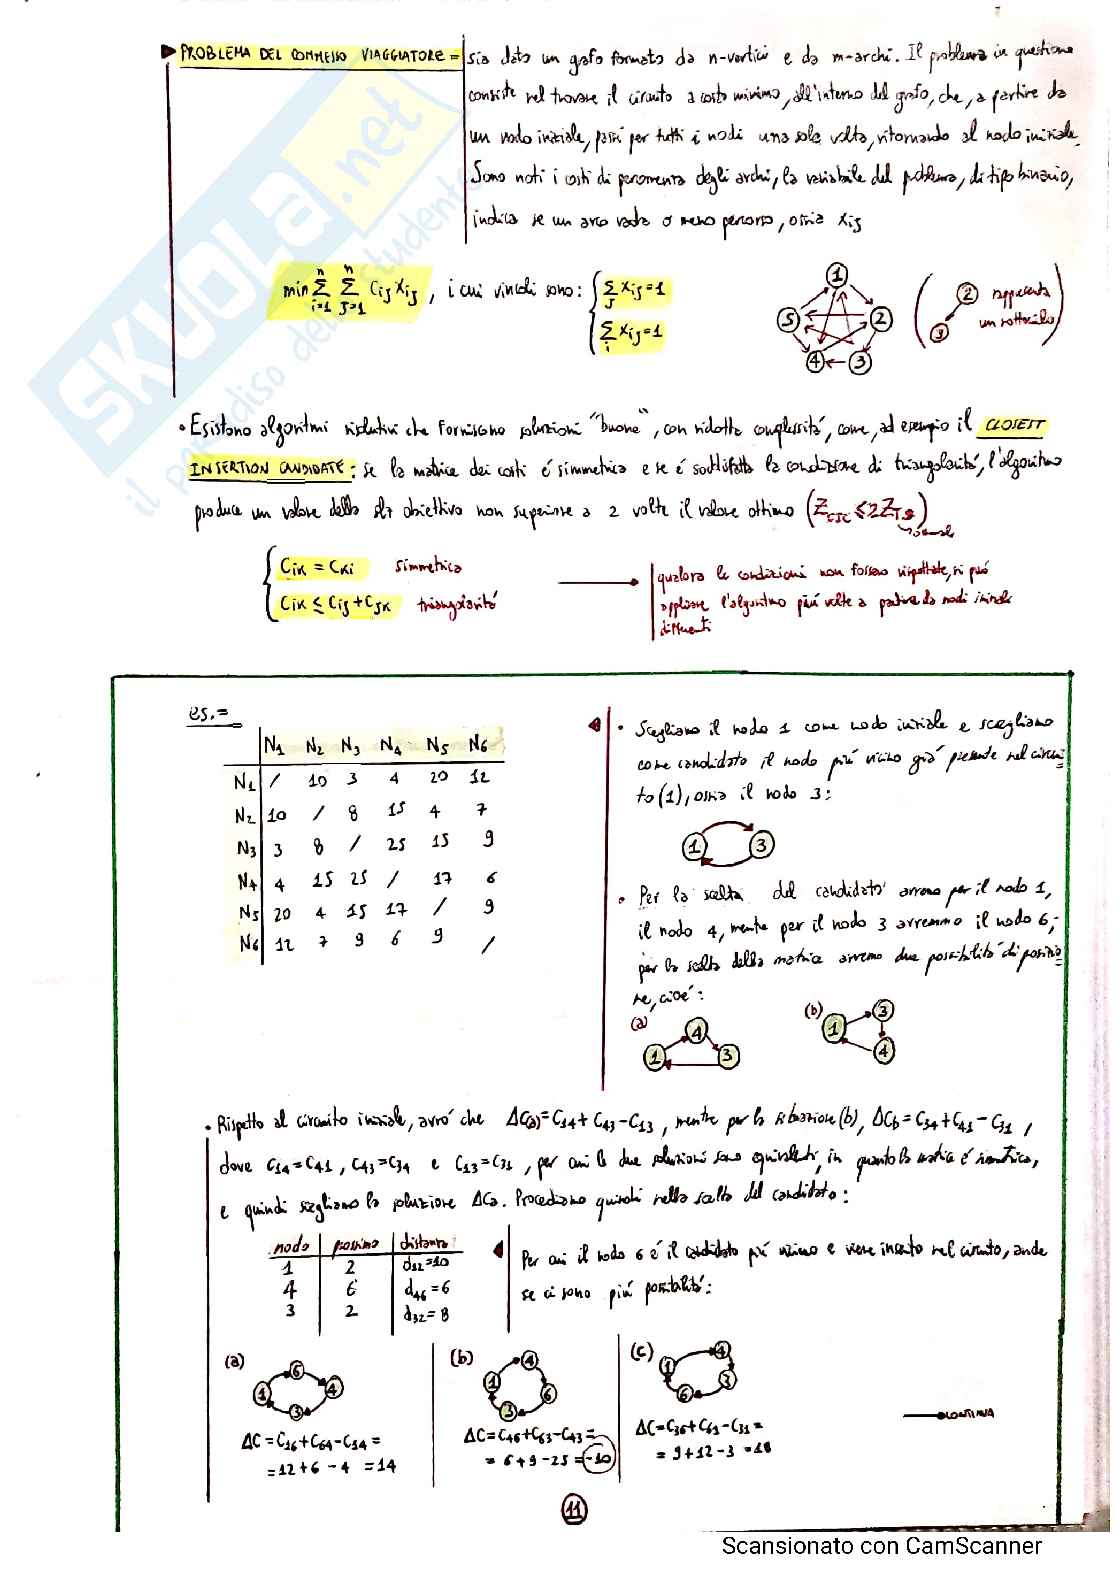 PROBLEMA DEL COMMESSO VIAGGIATORE = sia dato un grafo formato da n-vertici e da m-archi. Il problema in questione
consiste nel trovare il circuito a costo minimo, all'interno del grafo, che, a partire da
un nodo iniziale, passi per tutti i nodi una sola volta, ritornando al nodo iniziale.
Sono noti i costi di percorrenza degli archi, la variabile del problema, di tipo binario,
indica se un arco vada o meno percorso, ossia xij
min Σ(i=1..n) Σ(j=1..n) Cij Xij , i cui vincoli sono: { Σj Xij = 1
Σi Xij = 1
1 2 3 4 5
( 2 3 rappresenta
un sottociclo )
SKUOLA.net
il paradiso dello studente
• Esistono algoritmi risolutivi che forniscono soluzioni "buone", con ridotta complessità, come, ad esempio il CLOSEST
INSERTION CANDIDATE: se la matrice dei costi é simmetrica e se é soddisfatta la condizione di triangolarità, l'algoritmo
produce un valore della f.z obiettivo non superiore a 2 volte il valore ottimo (ZCIC ≤ 2ZTS)
Cik = Cki simmetrica
Cik ≤ Cij + Cjk triangolarità
qualora le condizioni non fossero rispettate, si può
applicare l'algoritmo più volte a partire da nodi iniziali
differenti
es.=
N1 N2 N3 N4 N5 N6
N1 / 10 3 4 20 12
N2 10 / 8 15 4 7
N3 3 8 / 25 15 9
N4 4 15 25 / 17 6
N5 20 4 15 17 / 9
N6 12 7 9 6 9 /
• Scegliamo il nodo 1 come nodo iniziale e scegliamo
come candidato il nodo più vicino già presente nel circui-
to (1), ossia il nodo 3:
1 3
• Per la scelta del candidato avremo per il nodo 1,
il nodo 4, mentre per il nodo 3 avremmo il nodo 6;
per la scelta della matrice avremo due possibilità di posizio
ne, cioé:
(a) 1 4 3
(b) 1 3 4
• Rispetto al circuito iniziale, avrò che ΔC(a) = C14 + C43 - C13 , mentre per la situazione (b), ΔCb = C34 + C41 - C31 ,
dove C14 = C41 , C43 = C34 e C13 = C31 , per cui le due soluzioni sono equivalenti, in quanto la matrice é simmetrica,
e quindi scegliamo la soluzione ΔCa. Procediamo quindi nella scelta del candidato:
nodo prossimo distanza
1 2 d12=10
4 6 d46=6
3 2 d32=8
Per cui il nodo 6 é il candidato più vicino e viene inserito nel circuito, anche
se ci sono più possibilità:
(a) 1 6 4 3
ΔC = C16 + C64 - C14 =
= 12 + 6 - 4 = 14
(b) 1 4 6 3
ΔC = C46 + C63 - C43 =
= 6 + 9 - 25 = -10
(c) 1 4 3 6
ΔC = C36 + C61 - C31 =
= 9 + 12 - 3 = 18
CONTINUA
11
Scansionato con CamScanner